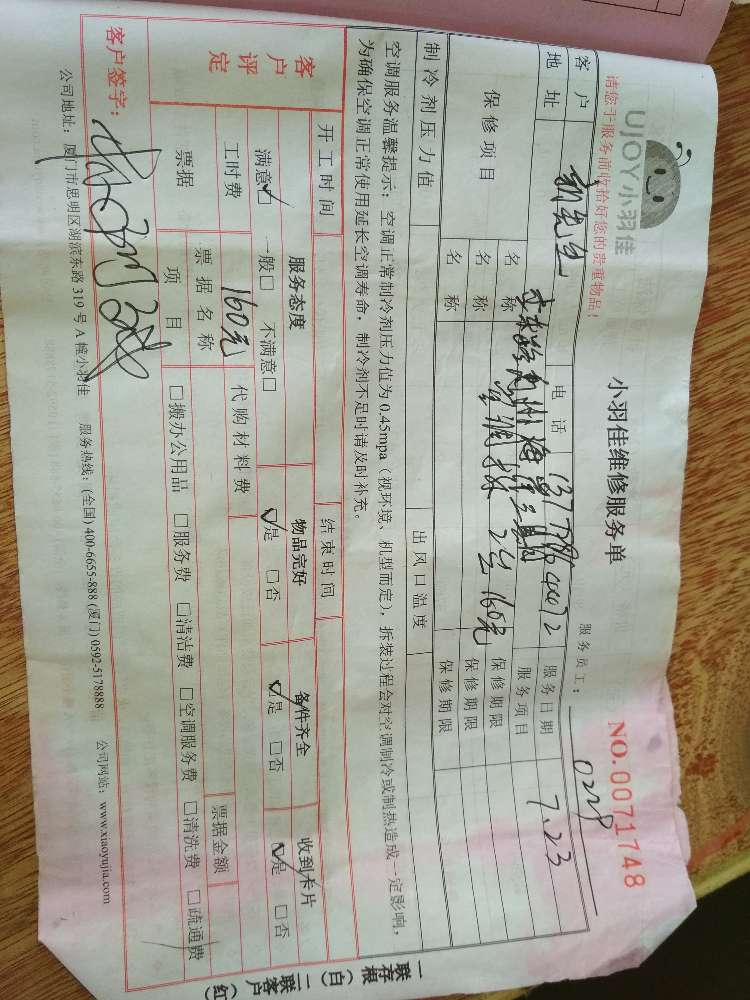 UJOY小羽佳
小羽佳维修服务单
NO.0071748
请您于服务前收拾好您的贵重物品!
服务员工: 0228
客户 电话 服务日期 7.23
地址 服务项目
保修项目 名称 2台 160元 保修期限
名称 保修期限
名称 保修期限
制冷剂压力值 出风口温度
空调服务温馨提示:空调正常制冷剂压力值为0.45mpa(视环境、机型而定),拆装过程会对空调制冷或制热造成一定影响,
为确保空调正常使用延长空调寿命,制冷剂不足时请及时补充。
开工时间 结束时间
客户评定 服务态度 物品完好 备件齐全 收到卡片
满意☑ 一般□ 不满意□ ☑是 □否 ☑是 □否 ☑是 □否
工时费 160元 代购材料费
票据 票据名称 票据金额
项目 □搬办公用品 □服务费 □清洁费 □空调服务费 □清洗费 □疏通费
客户签字:
公司地址:厦门市思明区湖滨东路319号A幢小羽佳 服务热线:(全国)400-6655-888 (厦门)0592-5178888 公司网站:www.xiaoyujia.com
一联存根(白) 二联客户(红)